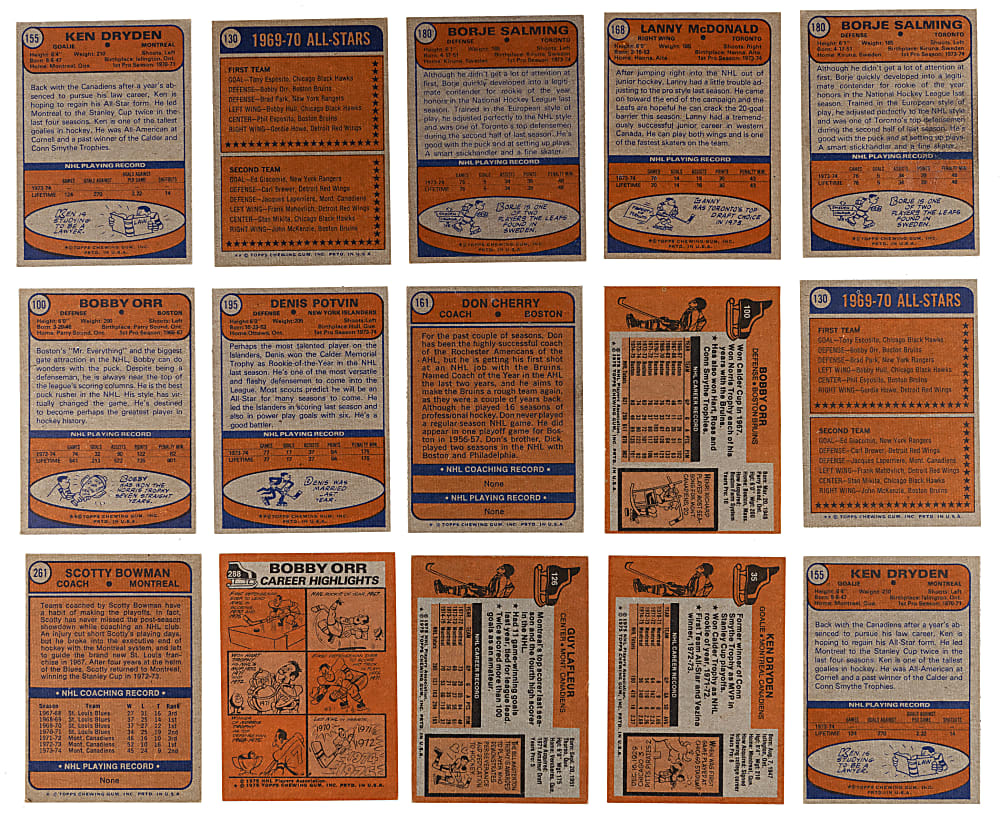 155 KEN DRYDEN
GOALIE MONTREAL
Height: 6'4" Weight: 210 Shoots: Left
Born: 8-8-47 Birthplace: Islington, Ont.
Home: Montreal, Que. 1st Pro Season: 1970-71
Back with the Canadiens after a year's ab-
senced to pursue his law career, Ken is
hoping to regain his All-Star form. He led
Montreal to the Stanley Cup twice in the
last four seasons. Ken is one of the tallest
goalies in hockey. He was All-American at
Cornell and a past winner of the Calder and
Conn Smythe Trophies.
NHL PLAYING RECORD
KEN IS
STUDYING
TO BE A
LAWYER.
© TOPPS CHEWING GUM, INC.
PRTD. IN U.S.A.
130 1969-70 ALL-STARS
FIRST TEAM
GOAL—Tony Esposito, Chicago Black Hawks
DEFENSE—Bobby Orr, Boston Bruins
DEFENSE—Brad Park, New York Rangers
LEFT WING—Bobby Hull, Chicago Black Hawks
CENTER—Phil Esposito, Boston Bruins
RIGHT WING—Gordie Howe, Detroit Red Wings
SECOND TEAM
GOAL—Ed Giacomin, New York Rangers
DEFENSE—Carl Brewer, Detroit Red Wings
DEFENSE—Jacques Laperriere, Mont. Canadiens
LEFT WING—Frank Mahovlich, Detroit Red Wings
CENTER—Stan Mikita, Chicago Black Hawks
RIGHT WING—John McKenzie, Boston Bruins
© TOPPS CHEWING GUM, INC. PRTD. IN U.S.A.
180 BORJE SALMING
DEFENSE TORONTO
Height: 6'1" Weight: 185 Shoots: Left
Born: 4-17-51 Birthplace: Kiruna, Sweden
Home: Kiruna, Sweden 1st Pro Season: 1973-74
Although he didn't get a lot of attention at
first, Borje quickly developed into a legiti-
mate contender for rookie of the year
honors in the National Hockey League last
season. Trained in the European style of
play, he adjusted perfectly to the NHL style
and was one of Toronto's top defensemen
during the second half of last season. He's
good with the puck and at setting up plays.
A smart stickhandler and a fine skater.
NHL PLAYING RECORD
BORJE IS ONE
OF TWO
PLAYERS THE LEAFS
FOUND IN
SWEDEN.
© TOPPS CHEWING GUM, INC.
PRTD. IN U.S.A.
168 LANNY McDONALD
RIGHT WING TORONTO
Height: 6'0" Weight: 185 Shoots: Right
Born: 2-16-53 Birthplace: Hanna, Alta.
Home: Hanna, Alta. 1st Pro Season: 1973-74
After jumping right into the NHL out of
junior hockey, Lanny had a little trouble ad-
justing to the pro style last season. He came
on toward the end of the campaign and the
Leafs are hopeful he can crack the 20-goal
barrier this season. Lanny had a tremend-
ously successful junior career in western
Canada. He can play both wings and is one
of the fastest skaters on the team.
NHL PLAYING RECORD
LANNY
WAS TORONTO'S TOP
DRAFT CHOICE
IN 1973.
© TOPPS CHEWING GUM, INC.
PRTD. IN U.S.A.
180 BORJE SALMING
DEFENSE TORONTO
Height: 6'1" Weight: 185 Shoots: Left
Born: 4-17-51 Birthplace: Kiruna, Sweden
Home: Kiruna, Sweden 1st Pro Season: 1973-74
Although he didn't get a lot of attention at
first, Borje quickly developed into a legiti-
mate contender for rookie of the year
honors in the National Hockey League last
season. Trained in the European style of
play, he adjusted perfectly to the NHL style
and was one of Toronto's top defensemen
during the second half of last season. He's
good with the puck and at setting up plays.
A smart stickhandler and a fine skater.
NHL PLAYING RECORD
BORJE IS ONE
OF TWO
PLAYERS THE LEAFS
FOUND IN
SWEDEN.
© TOPPS CHEWING GUM, INC.
PRTD. IN U.S.A.
100 BOBBY ORR
DEFENSE BOSTON
Height: 6'0" Weight: 200 Shoots: Left
Born: 3-20-48 Birthplace: Parry Sound, Ont.
Home: Parry Sound, Ont. 1st Pro Season: 1966-67
Boston's "Mr. Everything" and the biggest
gate attraction in the NHL, Bobby can do
wonders with the puck. Despite being a
defenseman, he is always near the top of
the league's scoring columns. He is the best
puck rusher in the NHL. His style has vir-
tually changed the game. He's destined
to become perhaps the greatest player in
hockey history.
NHL PLAYING RECORD
BOBBY
HAS WON THE
NORRIS TROPHY
SEVEN STRAIGHT
YEARS.
© TOPPS CHEWING GUM, INC.
PRTD. IN U.S.A.
195 DENIS POTVIN
DEFENSE NEW YORK ISLANDERS
Height: 6'0" Weight: 205 Shoots: Left
Born: 10-29-53 Birthplace: Hull, Que.
Home: Ottawa, Ont. 1st Pro Season: 1973-74
Perhaps the most talented player on the
Islanders, Denis won the Calder Memorial
Trophy as Rookie-of-the-Year in the NHL
last season. He's one of the most versatile
and flashy defensemen to come into the
League. Most scouts predict he will be an
All-Star for many seasons to come. He
led the Islanders in scoring last season and
also in power play goals with six. He's a
good battler.
NHL PLAYING RECORD
DENIS WAS
MARRIED
LAST
YEAR.
© TOPPS CHEWING GUM, INC.
PRTD. IN U.S.A.
161 DON CHERRY
COACH BOSTON
For the past couple of seasons, Don
has been the highly-successful coach
of the Rochester Americans of the
AHL, but he is getting his first shot
at an NHL job with the Bruins.
Named Coach of the Year in the AHL
the last two years, and he aims to
make the Bruins a rough team again,
as they were a couple of years back.
Although he played 16 seasons of
professional hockey, Don never played
a regular-season NHL game. He did
appear in one playoff game for Bos-
ton in 1956-57. Don's brother, Dick,
played two seasons in the NHL with
Boston and Philadelphia.
• NHL COACHING RECORD •
None
• NHL PLAYING RECORD •
None
© TOPPS CHEWING GUM, INC. PRTD. IN U.S.A.
100 BOBBY ORR
DEFENSE ★ BOSTON BRUINS
★ Won Calder Cup in 1967.
Won Norris Trophy each of his
years with the Bruins.
★ Has also won Hart, Ross and
Conn Smythe Trophies.
NHL CAREER RECORD
130 1969-70 ALL-STARS
FIRST TEAM
GOAL—Tony Esposito, Chicago Black Hawks
DEFENSE—Bobby Orr, Boston Bruins
DEFENSE—Brad Park, New York Rangers
LEFT WING—Bobby Hull, Chicago Black Hawks
CENTER—Phil Esposito, Boston Bruins
RIGHT WING—Gordie Howe, Detroit Red Wings
SECOND TEAM
GOAL—Ed Giacomin, New York Rangers
DEFENSE—Carl Brewer, Detroit Red Wings
DEFENSE—Jacques Laperriere, Mont. Canadiens
LEFT WING—Frank Mahovlich, Detroit Red Wings
CENTER—Stan Mikita, Chicago Black Hawks
RIGHT WING—John McKenzie, Boston Bruins
© TOPPS CHEWING GUM, INC. PRTD. IN U.S.A.
261 SCOTTY BOWMAN
COACH MONTREAL
Teams coached by Scotty Bowman have
a habit of making the playoffs. In fact,
Scotty has never missed the post-season
showdown while coaching an NHL club.
An injury cut short Scotty's playing days,
but he broke into the executive end of
hockey with the Montreal system, and left
to guide the brand new St. Louis fran-
chise in 1967. After four years at the helm
of the Blues, Scotty returned to Montreal,
winning the Stanley Cup in 1972-73.
• NHL COACHING RECORD •
Season Team W L T Rank
1967-68 St. Louis Blues 27 31 16 3rd
1968-69 St. Louis Blues 37 25 14 1st
1969-70 St. Louis Blues 37 27 12 1st
1970-71 St. Louis Blues 34 25 19 2nd
1971-72 Mont. Canadiens 46 16 16 3rd
1972-73 Mont. Canadiens 52 10 16 1st
1973-74 Mont. Canadiens 45 24 9 2nd
• NHL PLAYING RECORD •
None
© TOPPS CHEWING GUM, INC. PRTD. IN U.S.A.
288 BOBBY ORR
CAREER HIGHLIGHTS
NHL ROOKIE OF YEAR, 1967.
1970 1971 1972
© 1975 NHL Players Association
126 GUY LAFLEUR
CENTER ★ MONT. CANADIENS
Montreal's top scorer last sea-
son and the fourth high scorer
in the NHL.
★ Had 11 game-winning goals
to lead the entire league.
★ Twice scored more than 100
goals as an amateur.
NHL CAREER RECORD
35 KEN DRYDEN
GOALIE ★ MONTREAL CANADIENS
Former winner of Conn
Smythe Trophy as MVP in
Stanley Cup playoffs.
★ Won Calder Trophy as NHL
rookie of year, 1971-72.
★ First Team All-Star and Vezina
winner, 1972-73.
NHL CAREER RECORD
155 KEN DRYDEN
GOALIE MONTREAL
Height: 6'4" Weight: 210 Shoots: Left
Born: 8-8-47 Birthplace: Islington, Ont.
Home: Montreal, Que. 1st Pro Season: 1970-71
Back with the Canadiens after a year's ab-
senced to pursue his law career, Ken is
hoping to regain his All-Star form. He led
Montreal to the Stanley Cup twice in the
last four seasons. Ken is one of the tallest
goalies in hockey. He was All-American at
Cornell and a past winner of the Calder and
Conn Smythe Trophies.
NHL PLAYING RECORD
KEN IS
STUDYING
TO BE A
LAWYER.
© TOPPS CHEWING GUM, INC.
PRTD. IN U.S.A.